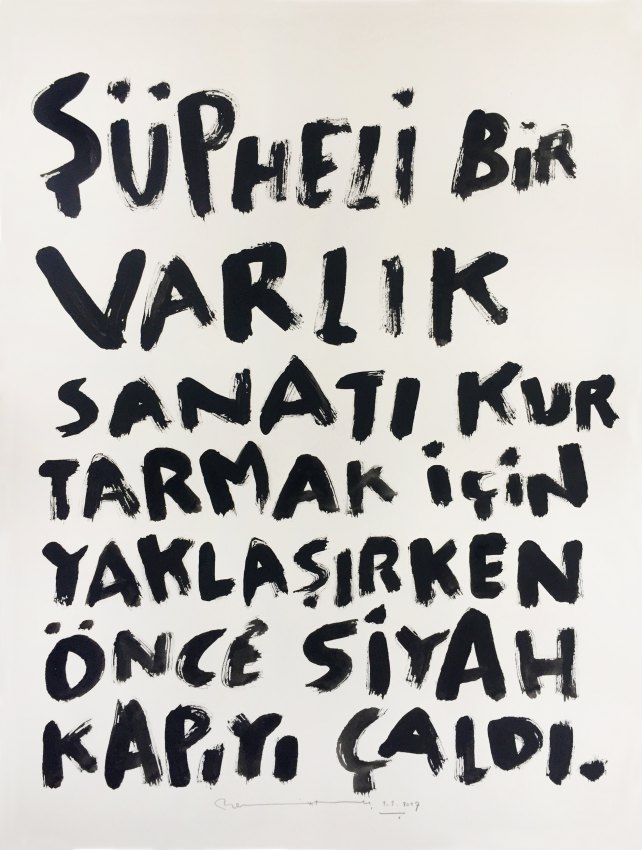 ŞÜPHELİ BİR
VARLIK
SANATI KUR
TARMAK İÇİN
YAKLAŞIRKEN
ÖNCE SİYAH
KAPIYI ÇALDI.